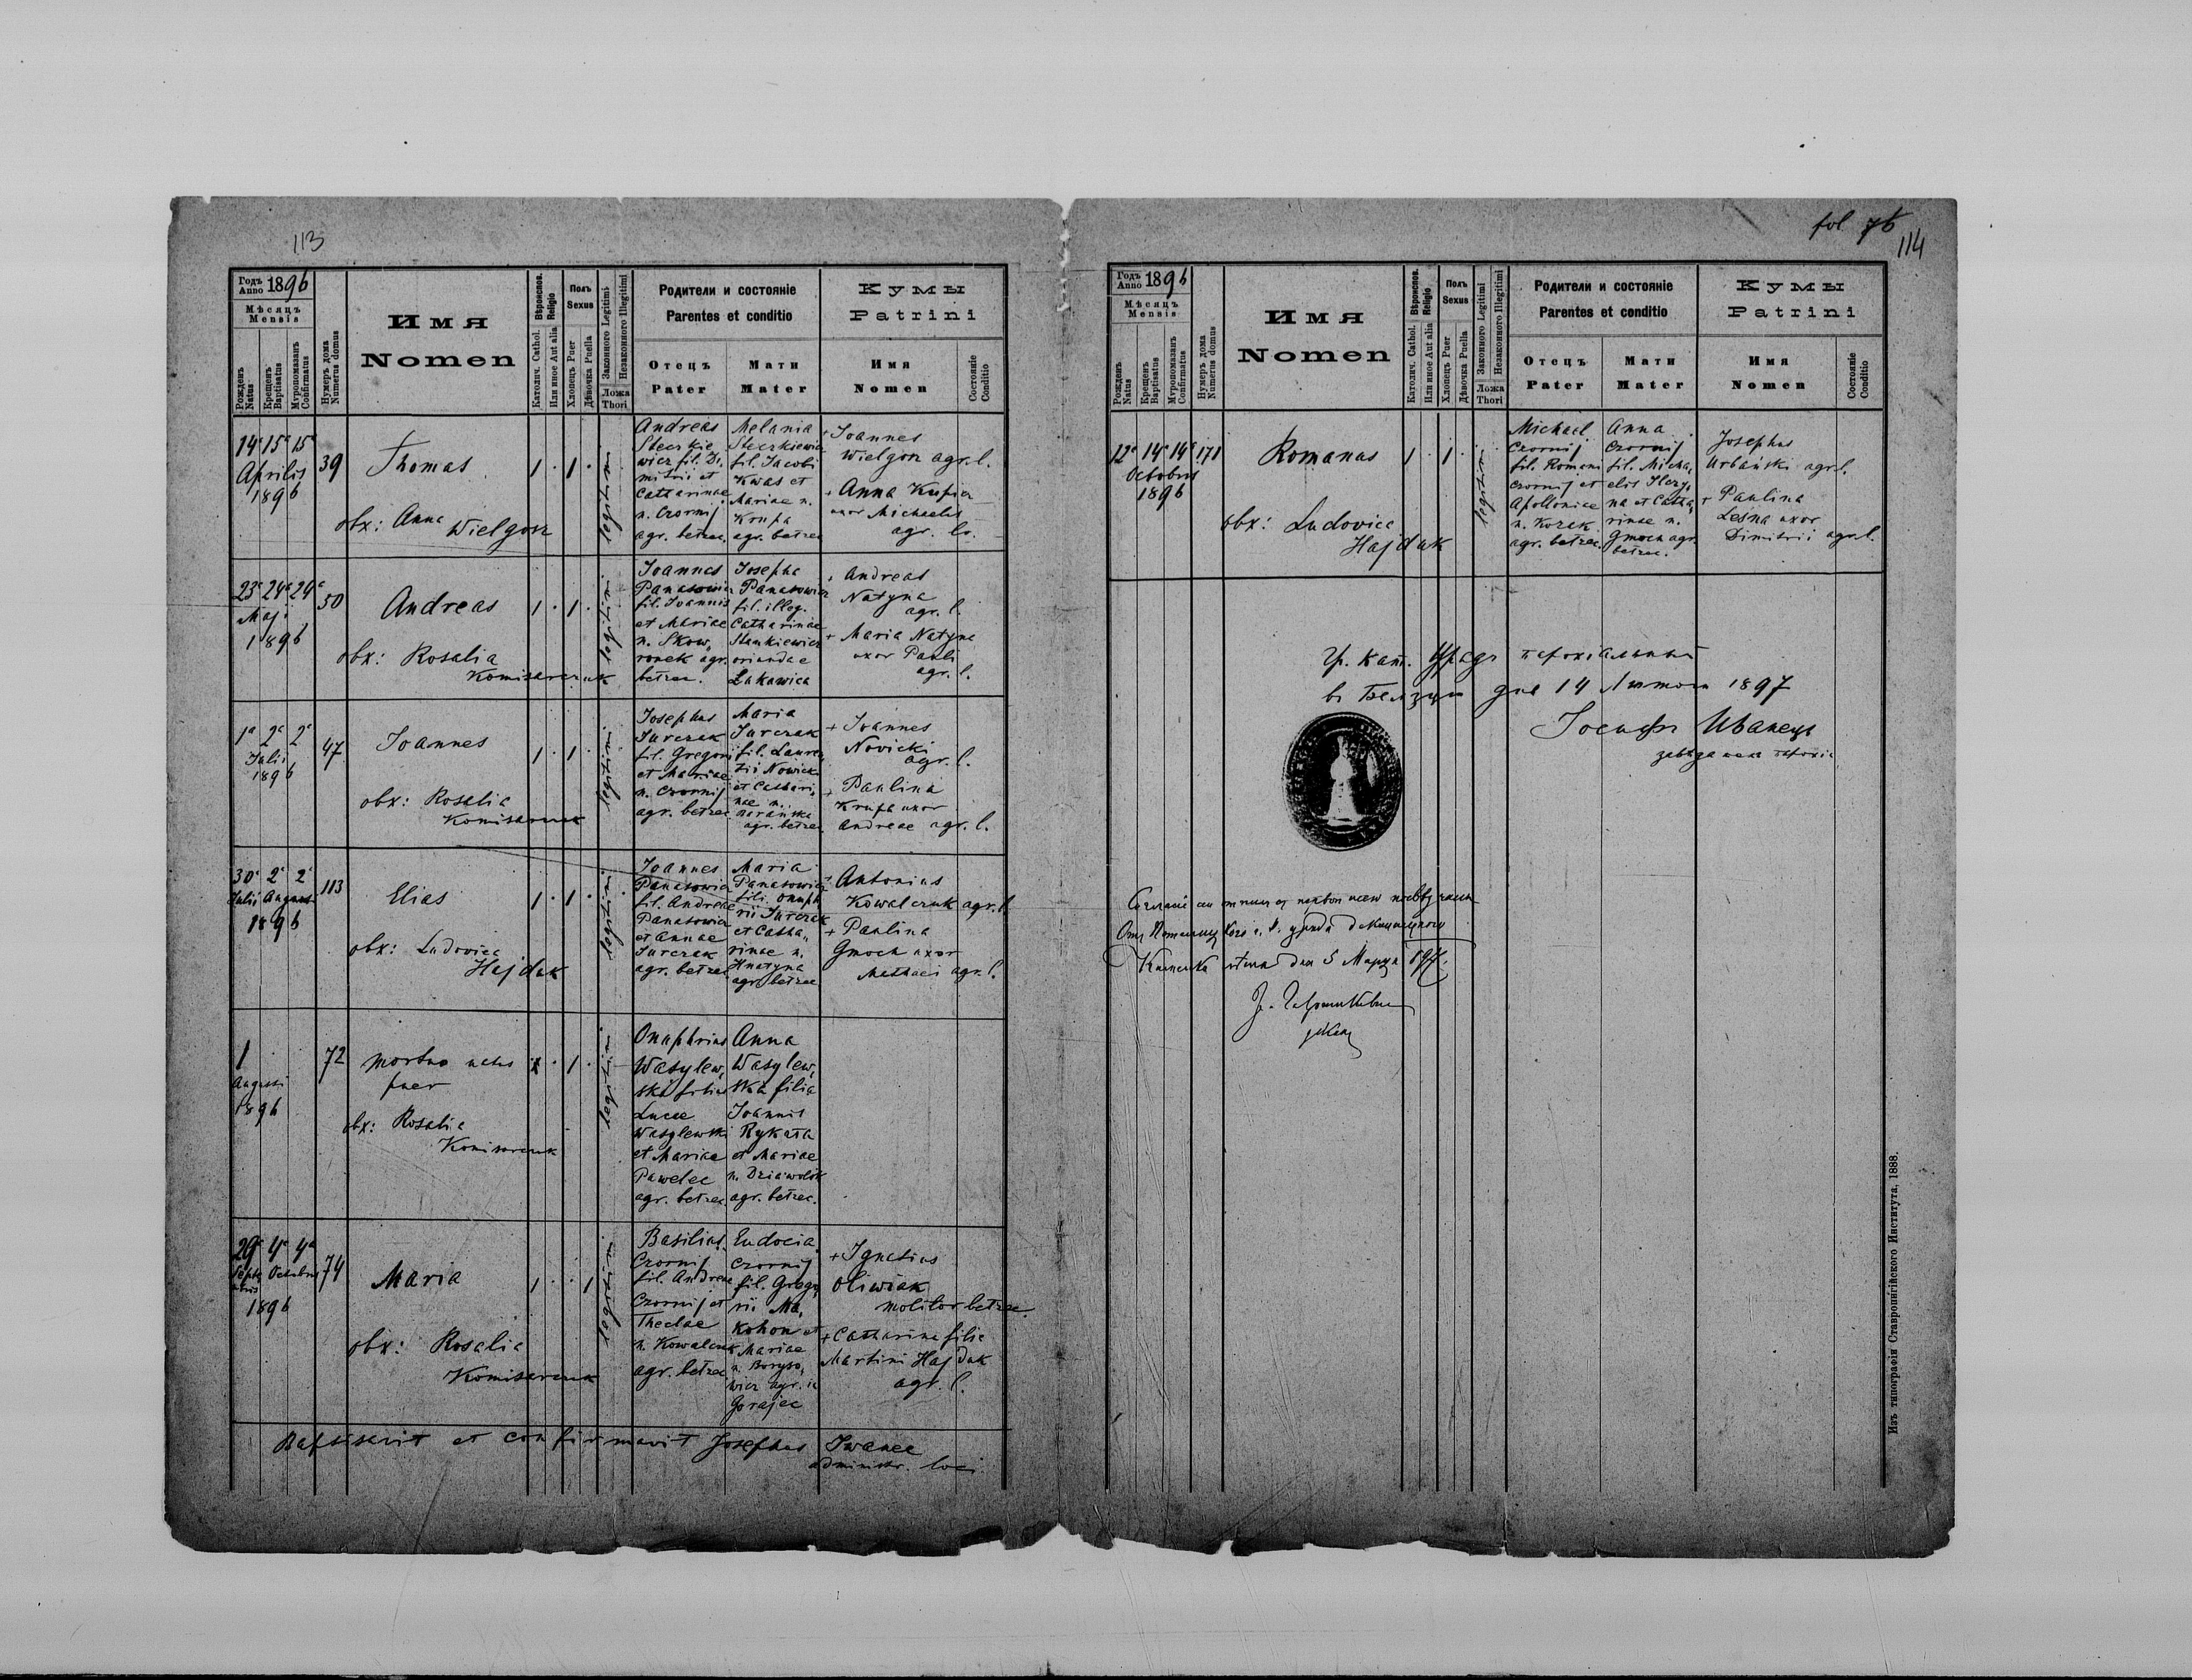 113
Годъ Anno 1896
Мѣсяцъ
Mensis
Рожденъ Natus
Крещенъ Baptisatus
Мѵропомазанъ Confirmatus
Нумеръ дома Numerus domus
Имя
Nomen
Вѣроиспов. Religio
Католич. Cathol.
Или иное Aut alia
Полъ
Sexus
Хлопецъ Puer
Дѣвочка Puella
Законного Legitimi
Незаконного Illegitimi
Ложа
Thori
Родители и состояніе
Parentes et conditio
Отецъ
Pater
Мати
Mater
Кумы
Patrini
Имя
Nomen
Состояніе
Conditio
14a 15a 15a
Aprilis
1896
39
Thomas
obx: Anna
Wielgosz
1 . 1 .
legitimi
Andreas
Steczkie
wicz fil. Di,
mitrii et
Catharinae
n. Czornij
agr. bełzec.
Melania
Steczkiewicz
fil. Jacobi
Kwas et
Mariae n.
Krupa
agr. bełzec
+ Joannes
Wielgosz agr. l.
+ Anna Krupa
uxor Michaelis
agr. lo.
23a 24a 24a
Maji
1896
50
Andreas
obx: Rosalia
Komisarczuk
1 . 1 .
legitimi
Joannes
Panasowicz
fil. Joannis
et Mariae
n. Skow,
ronek agr.
bełzec.
Josepha
Panasowicz
fil. illeg.
Catharinae
Stankiewicz
oriundae
Łukawica
+ Andreas
Natyna
agr. l.
+ Maria Natyna
uxor Pauli
agr. l.
1a 2a 2a
Julii
1896
47
Joannes
obx: Rosalia
Komisarczuk
1 . 1 .
legitimi
Josephus
Jurczak
fil. Gregorii
et Mariae
n. Czornij
agr. bełzec.
Maria
Jurczak
fil. Lauren
tii Nowicki
et Cathari,
nae n.
agr. bełzec
+ Joannes
Novicki
agr. l.
+ Paulina
Krupa uxor
Andreae agr. l.
30a 2a 2a
Julii Augusti
1896
113
Elias
obx: Ludovica
Hajduk
1 . 1 .
legitimi
Joannes
Panasowicz
fil. Andreae
Panasowicz
et Annae
Jurczak
agr. bełzec
Maria
Panasowicz
fil. Onuph
rii Jurczak
et Catha,,
rinae n.
Hnatyna
agr. bełzec
+ Antonius
Kowalczuk agr. l.
+ Paulina
Gmoch uxor
Mathaei agr. l.
1
Augusti
1896
72
Mortuo natus
puer
obx: Rosalia
Komisarczuk
. 1 .
legitimi
Onuphrius
Wasylew,
ski filius
Lucae
Wasylewski
et Mariae
Pawelec
agr. bełzec.
Anna
Wasylew,
ska filia
Joannis
Rykała
et Mariae
n. Dziawołok
agr. bełzec.
29a 4a 4a
Septembris Octobris
1896
74
Maria
obx: Rosalia
Komisarczuk
1 . . 1
legitimi
Basilius
Czornij
fil. Andreae
Czornij et
Theclae
n. Kowalczuk
agr. bełzec
Eudocia
Czornij
fil. Grego,
rii Ma,
kohon et
Mariae
n. Boryso,
wicz agr. in
Gorajec
+ Ignatius
Oliwiak
molitor bełzec
+ Catharina filia
Martini Hajduk
agr. l.
Baptisavit et confirmavit Josephus Iwanec
administr. loci
fol 76
114
Годъ Anno 1896
Мѣсяцъ
Mensis
Рожденъ Natus
Крещенъ Baptisatus
Мѵропомазанъ Confirmatus
Нумеръ дома Numerus domus
Имя
Nomen
Вѣроиспов. Religio
Католич. Cathol.
Или иное Aut alia
Полъ
Sexus
Хлопецъ Puer
Дѣвочка Puella
Законного Legitimi
Незаконного Illegitimi
Ложа
Thori
Родители и состояніе
Parentes et conditio
Отецъ
Pater
Мати
Mater
Кумы
Patrini
Имя
Nomen
Состояніе
Conditio
12a 14a 14a
Octobris
1896
171
Romanus
obx: Ludovica
Hajduk
1 . 1 .
legitimi
Michael
Czornij
fil. Romani
Czornij et
Apolloniae
n. Kozak
agr. bełzec.
Anna
Czornij
fil. Micha,
elis Ilczy,
na et Catha,
rinae n.
Gmoch agr.
bełzec.
Josephus
Urbański agr. l.
+ Paulina
Leśna uxor
Dimitrii agr. l.
Гр. кат. Урядъ парохіальный
въ Белзци дне 14 Лютого 1897
Іосифъ Иванець
дня 5 Марта 897.
Изъ типографіи Ставропигійского Института, 1888.